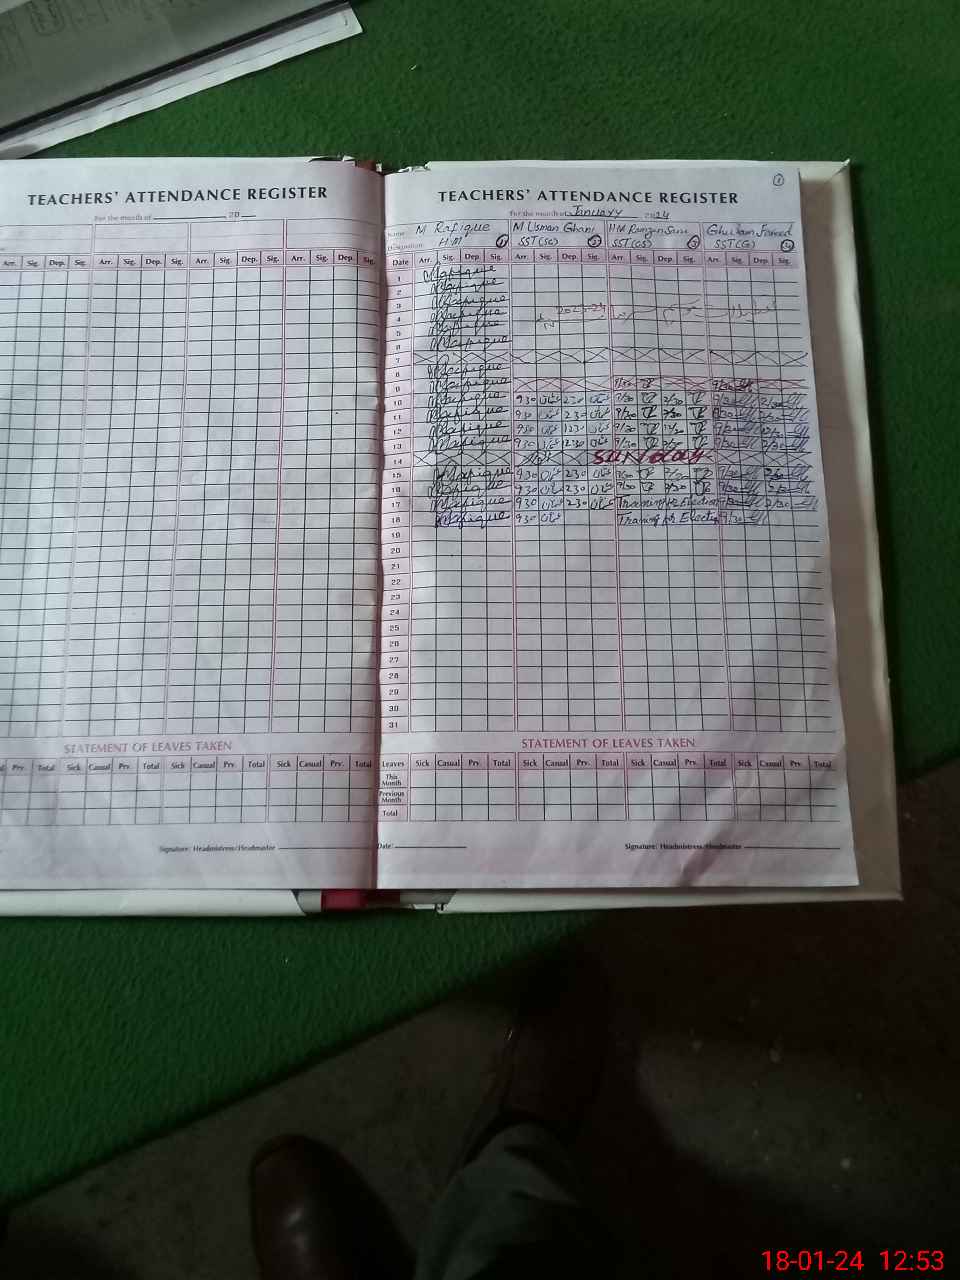 TEACHERS' ATTENDANCE REGISTER
For the month of 20
Arr. Sig. Dep. Sig. Arr. Sig. Dep. Sig. Arr. Sig. Dep. Sig. Arr. Sig. Dep. Sig.
STATEMENT OF LEAVES TAKEN
Prv. Total Sick Casual Prv. Total Sick Casual Prv. Total Sick Casual Prv. Total
Signature: Headmistress/Headmaster
1
TEACHERS' ATTENDANCE REGISTER
For the month of January 2024
Name M Rafique M Usman Ghani HM Ghulam Fareed
Designation HM 1 SST(SC) 2 SST(GS) 3 SST(G) 4
Date Arr. Sig. Dep. Sig. Arr. Sig. Dep. Sig. Arr. Sig. Dep. Sig. Arr. Sig. Dep. Sig.
1 MRafique
2 MRafique
3 MRafique 2023-24
4 MRafique
5 MRafique
6 MRafique
7
8 MRafique
9 MRafique 9/30 9/30
10 MRafique 930 عثمان 230 عثمان 9/30 2/30 9/30 2/30
11 MRafique 930 عثمان 230 عثمان 9/30 2/30 9/30 2/30
12 MRafique 930 عثمان 1230 عثمان 9/30 12/30 9/30
13 MRafique 930 عثمان عثمان 9/30 2/30 9/30 2/30
14 SUNday
15 MRafique 930 عثمان 230 عثمان 9/30 2/30 9/30 2/30
16 MRafique 930 عثمان 230 عثمان 9/30 2/30 9/30 2/30
17 MRafique 930 عثمان 230 عثمان Training for Election 9/30 2/30
18 MRafique 930 عثمان Training for Election 9/30
19
20
21
22
23
24
25
26
27
28
29
30
31
STATEMENT OF LEAVES TAKEN
Leaves Sick Casual Prv. Total Sick Casual Prv. Total Sick Casual Prv. Total Sick Casual Prv. Total
This Month
Previous Month
Total
Date: Signature: Headmistress/Headmaster
18-01-24 12:53